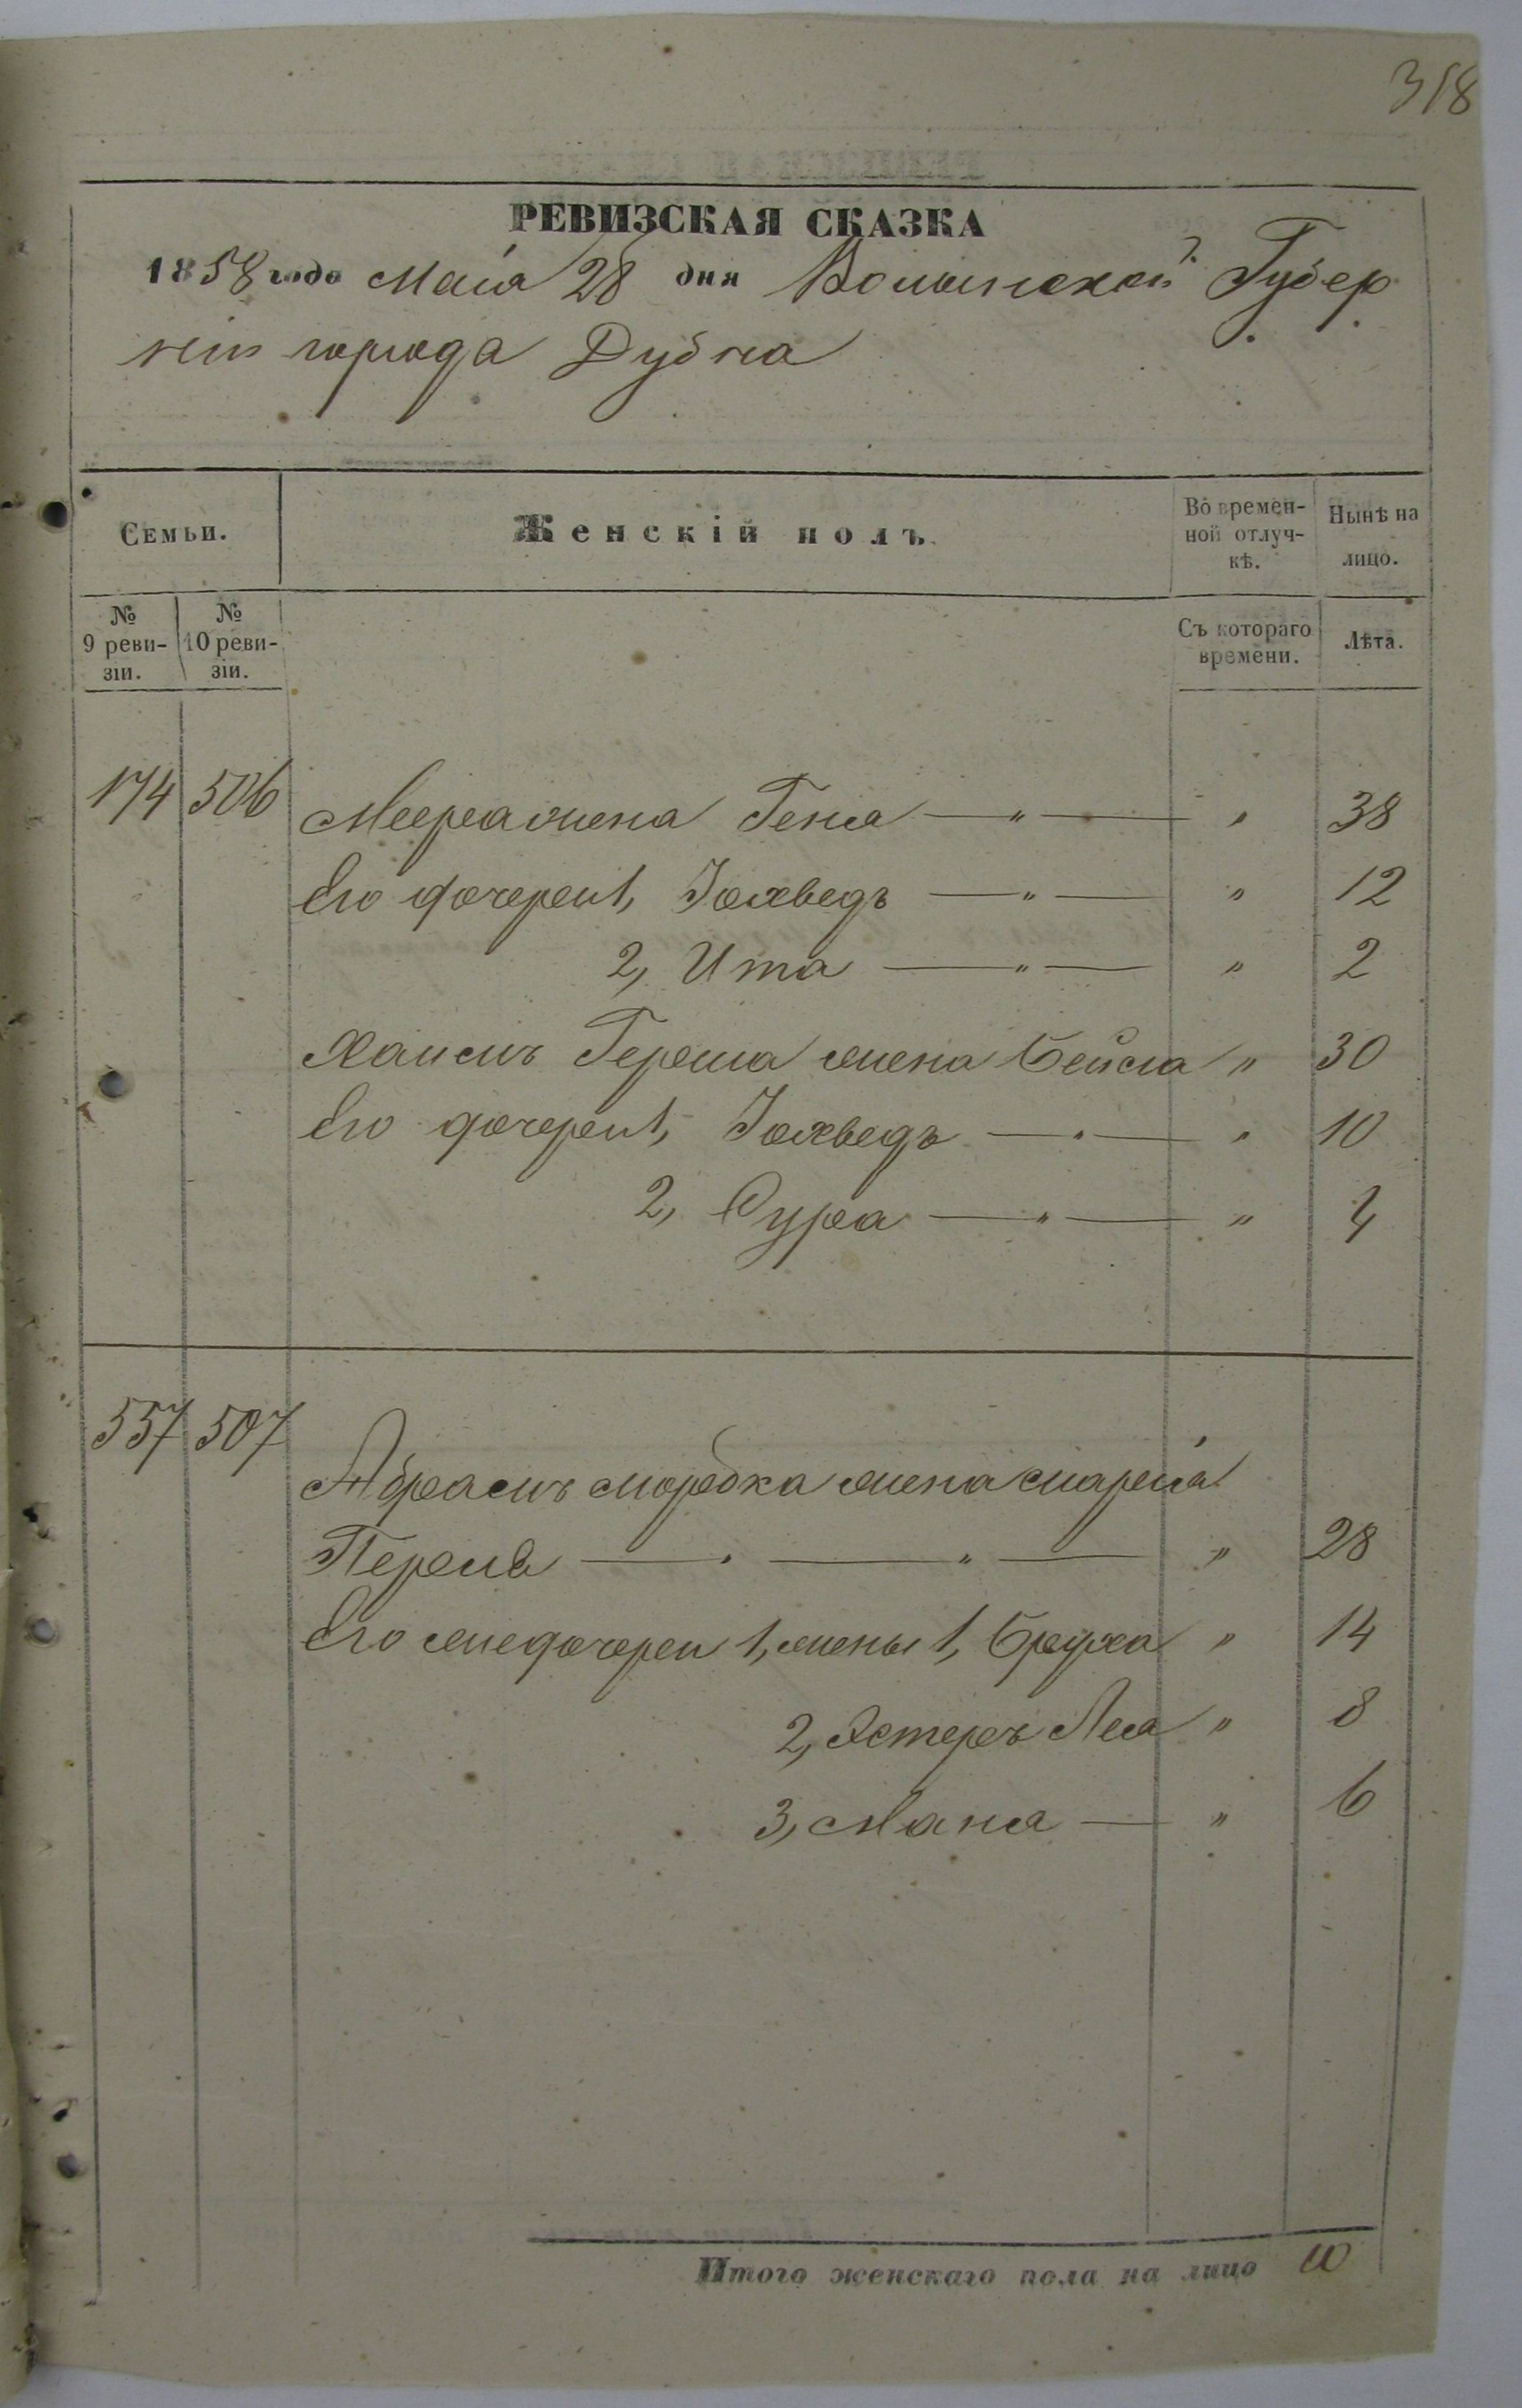 318
РЕВИЗСКАЯ СКАЗКА
1858 года Маія 28 дня Волынской Губер
ніи города Дубна
Семьи.
Женскій полъ.
Во времен-
ной отлуч-
кѣ.
Нынѣ на
лицо.
№
9 реви-
зіи.
№
10 реви-
зіи.
Съ котораго
времени.
Лѣта.
174 506 Меера жена Геня — " — " 38
Его дочереи 1, Іохведъ — " — " 12
2, Ита — " — " 2
Хаимъ Герша жена Бейла " 30
Его дочереи 1, Іохведъ — " — " 10
2, Сура — " — " 4
557 507
Абрамъ Мордка жена
Перля — " — " — " 28
Его дочереи 1, жены 1, Бруха " 14
2, Эстеръ Лея " 8
3, Маня — " 6
Итого женскаго пола на лицо 10